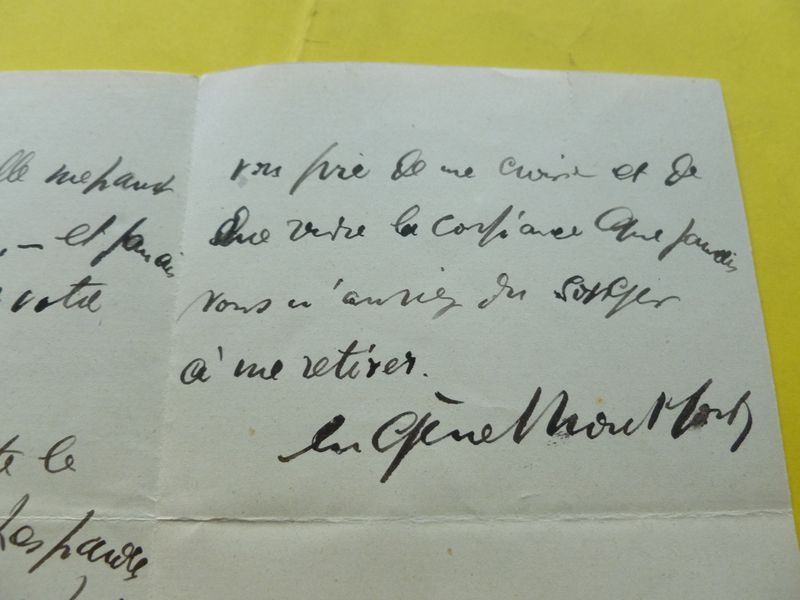 lle me parut
– et jamais
votre
te le
les gardes
vous prie de me croire et de
me rendre la confiance que jamais
vous n'auriez du songer
à me retirer.
Eugène Montfort